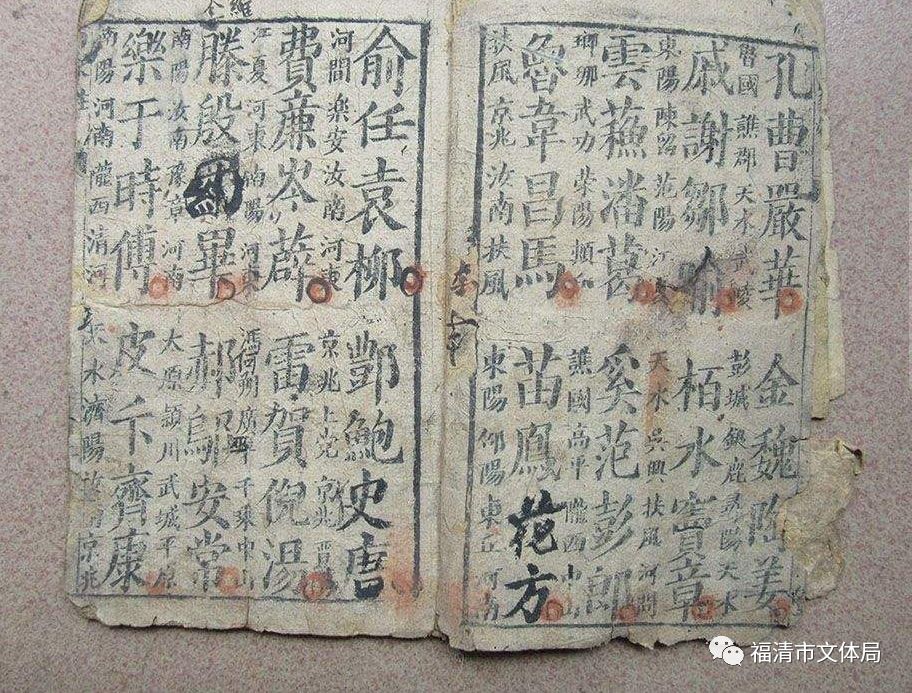 孔曹嚴華金魏陶姜
魯國譙郡天水武陵彭城鉅鹿天水
戚謝鄒喻栢水竇章
東陽陳留范陽江天水吳興扶風河間
雲蘇潘葛奚范彭郎
瑯琊武功滎陽頓譙國高平隴西中山
魯韋昌馬苗鳳花方
扶風京兆汝南扶風東陽郃陽東丘河南
俞任袁柳酆鮑史唐
河間樂安汝南河東京兆上党京兆
費廉岑薛雷賀倪湯
江夏河東南陽河東廣平千乘中山
滕殷畢郝鄔安常
南陽汝南豫章河南太原潁川武城平原
樂于時傅皮卞齊康
南陽河南隴西清河天水濟陽京兆
福清市文体局